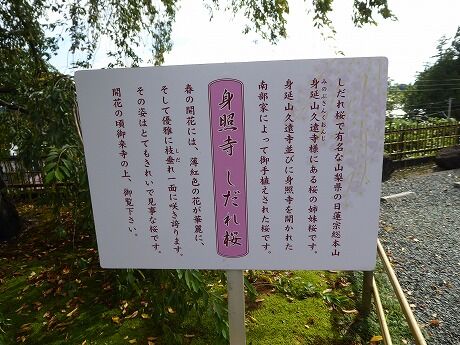 しだれ桜で有名な山梨県の日蓮宗総本山
みのぶさんくおんじ
身延山久遠寺様にある桜の姉妹桜です。
身延山久遠寺並びに身照寺を開かれた
南部家によって御手植えされた桜です。
身照寺 しだれ桜
春の開花には、薄紅色の花が華麗に、
しだ
そして優雅に枝垂れ一面に咲き誇ります。
その姿はとてもきれいで見事な桜です。
開花の頃御来寺の上、御覧下さい。